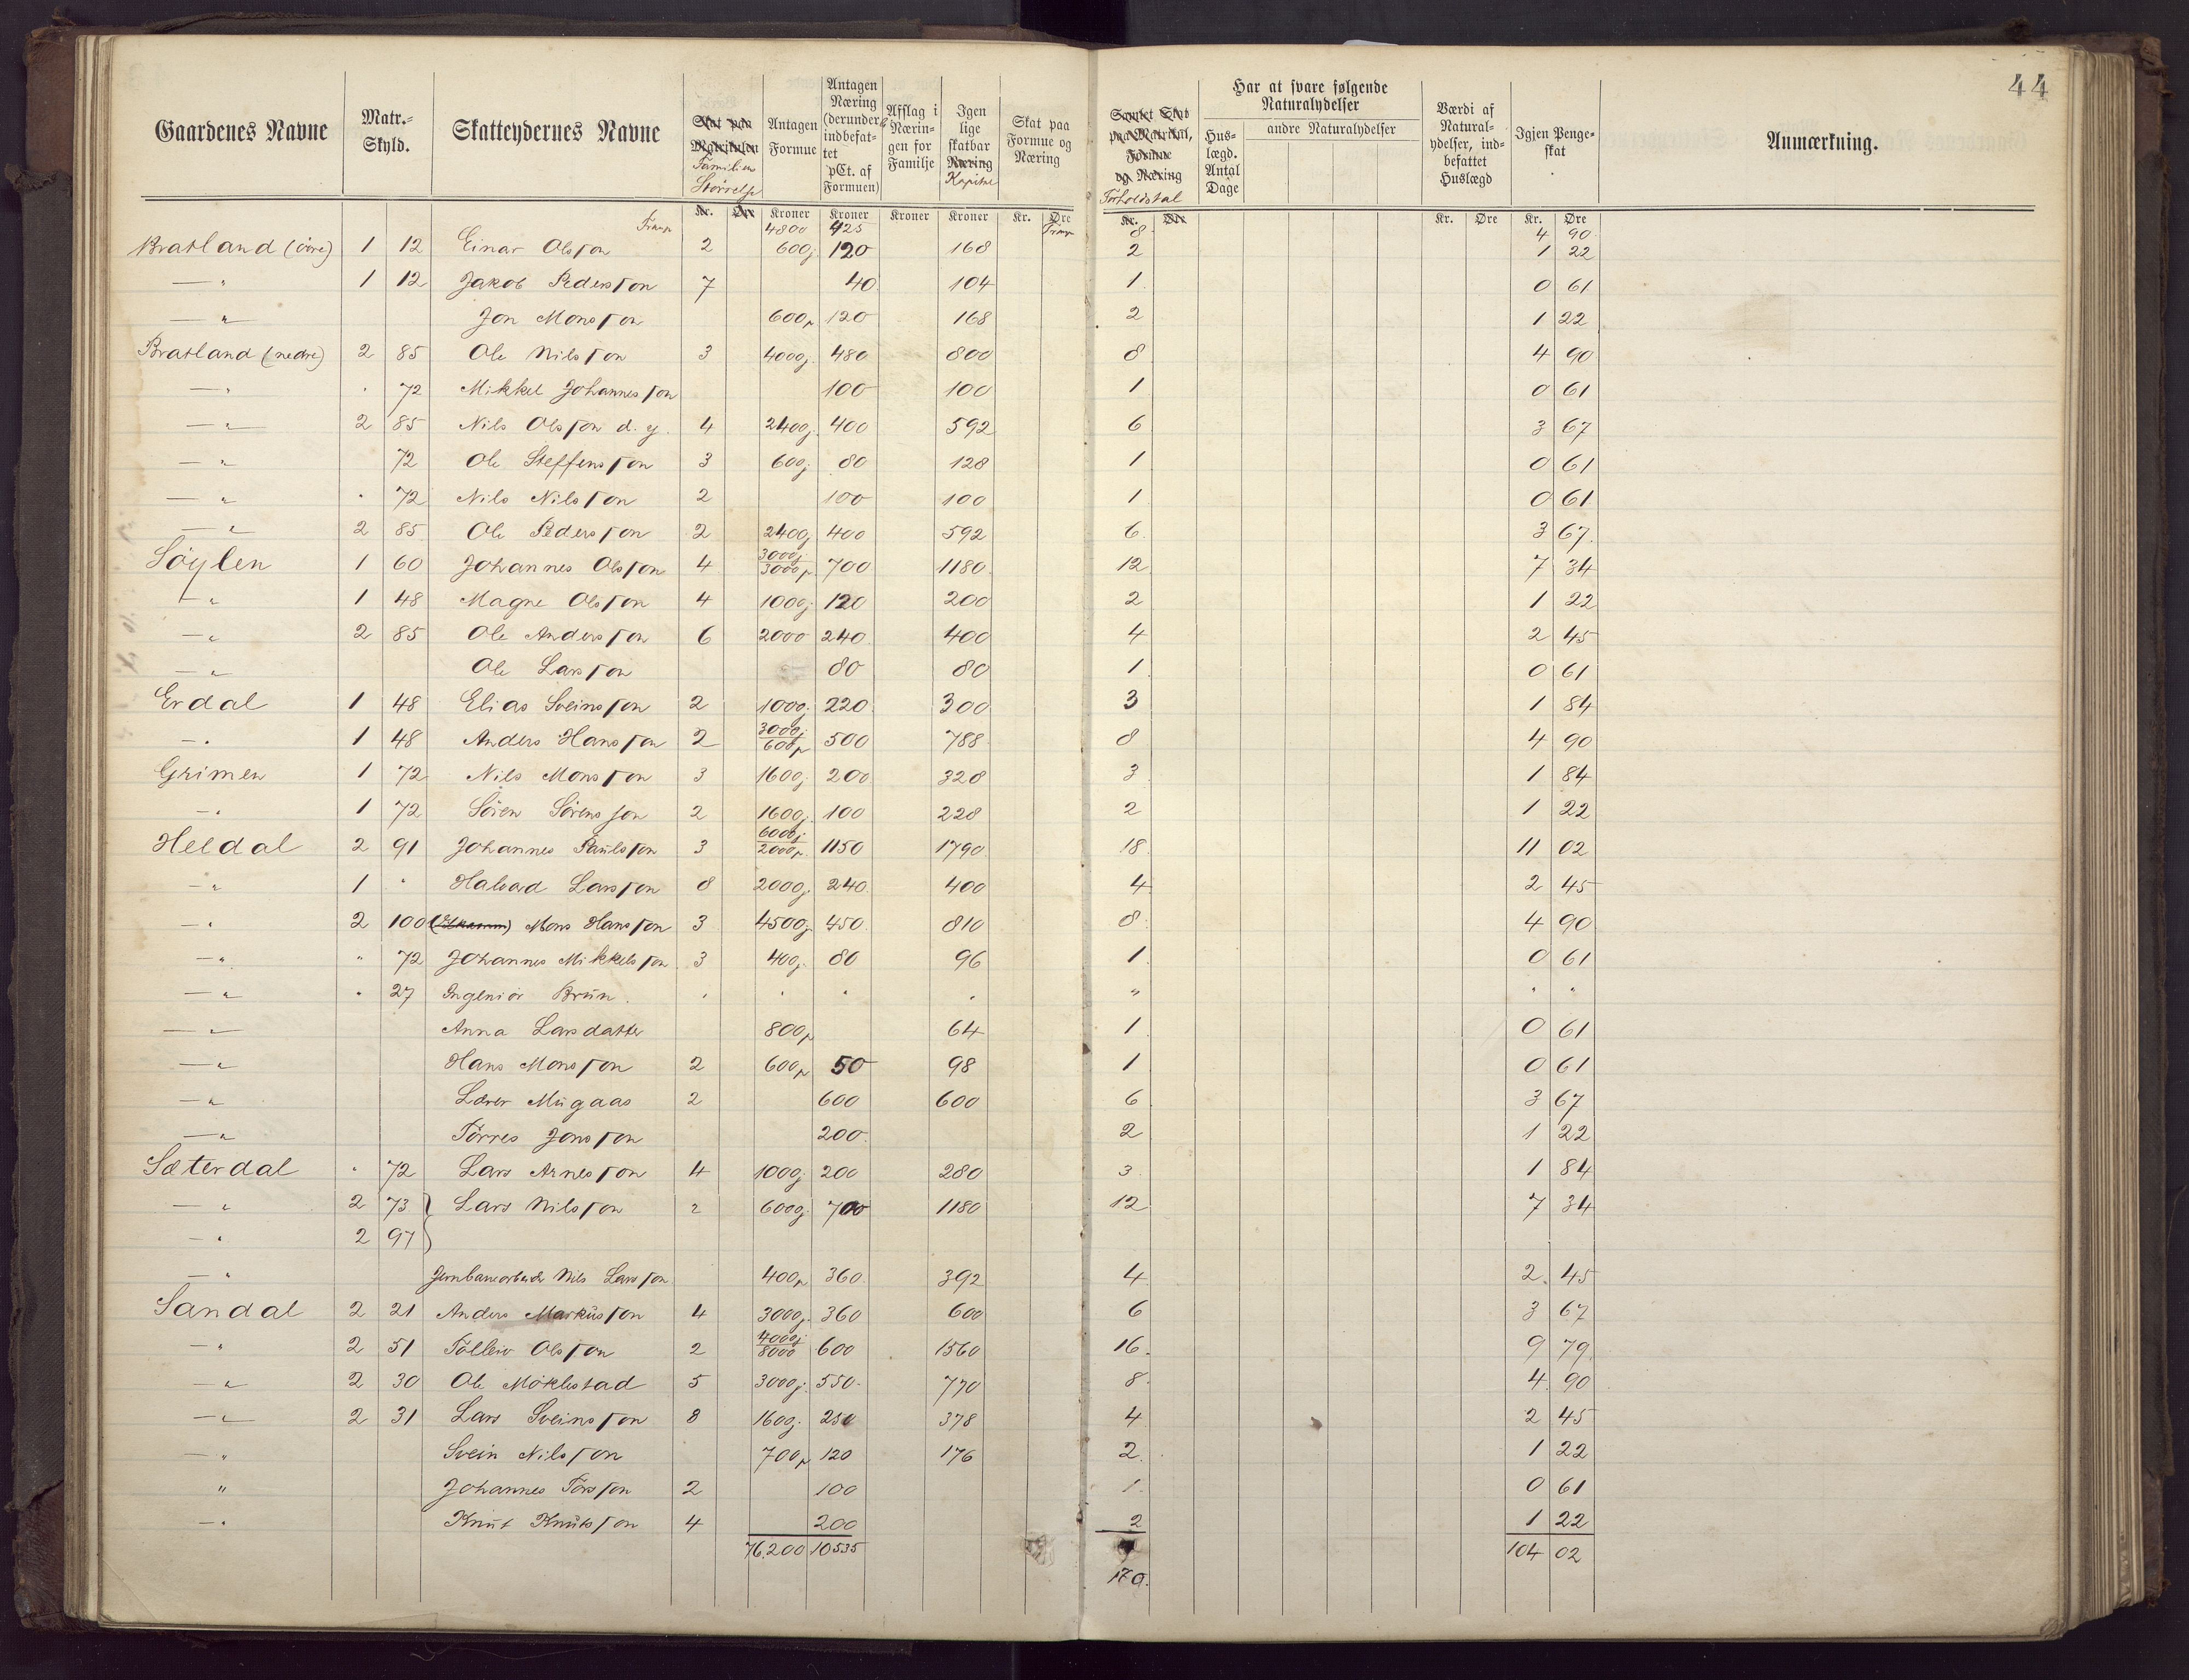 44
Gaardenes Navne | Matr.-Skyld. | Skatteydernes Navne | Skat paa Matrikulen Familiens Störrelse | Antagen Formue | Antagen Næring (derunder indbefattet pCt. af Formuen) | Afslag i Næringen for Familje | Igen lige skatbar Næring Kapital | Skat paa Formue og Næring | Samlet Skat paa Matrikul, Formue og Næring Forholdstal | Har at svare følgende Naturalydelser | Huslægd. Antal Dage | andre Naturalydelser | Værdi af Naturalydelser, indbefattet Huslægd | Igjen Pengeskat | Anmærkning.
Kr. | Øre | Kroner | Kroner | Kroner | Kroner | Kr. | Øre | Kr. | Øre | Kr. | Øre | Kr. | Øre
Transp | 4800 | 425 | Transp | 8 | 4 90
Bratland (övre) | 1 | 12 | Einar Olsson | 2 | 600j | 120 | 168 | 2 | 1 22
—" | 1 | 12 | Jakob Pedersson | 7 | 40 | 104 | 1 | 0 61
—" | Jon Monsson | 600p | 120 | 168 | 2 | 1 22
Bratland (nedre) | 2 | 85 | Ole Nilsson | 3 | 4000j. | 480 | 800 | 8 | 4 90
—" | " | 72 | Mikkel Johannesson | 100 | 100 | 1 | 0 61
—" | 2 | 85 | Nils Olsson d. y. | 4 | 2400j. | 400 | 592 | 6 | 3 67
—" | 72 | Ole Steffensson | 3 | 600j | 80 | 128 | 1 | 0 61
—" | " | 72 | Nils Nilsson | 2 | 100 | 100 | 1 | 0 61
—" | 2 | 85 | Ole Pedersson | 2 | 2400j | 400 | 592 | 6 | 3 67
Söylen | 1 | 60 | Johannes Olsson | 4 | 3000j. 3000p | 700 | 1180 | 12 | 7 34
—" | 1 | 48 | Magne Olsson | 4 | 1000j. | 120 | 200 | 2 | 1 22
—" | 2 | 85 | Ole Andersson | 6 | 2000 | 240 | 400 | 4 | 2 45
—" | Ole Larsson | 80 | 80 | 1 | 0 61
Erdal | 1 | 48 | Elias Sveinsson | 2 | 1000j. | 220 | 300 | 3 | 1 84
—" | 1 | 48 | Anders Hansson | 2 | 3000j. 600p | 500 | 788 | 8 | 4 90
Grimen | 1 | 72 | Nils Monsson | 3 | 1600j. | 200 | 328 | 3 | 1 84
—" | 1 | 72 | Sören Sörensson | 2 | 1600j. | 100 | 228 | 2 | 1 22
Heldal | 2 | 91 | Johannes Paulsson | 3 | 6000j. 2000p. | 1150 | 1790 | 18 | 11 02
—" | 1 | " | Halvad Larsson | 8 | 2000j. | 240 | 400 | 4 | 2 45
—" | 2 | 100 | Mons Hansson | 3 | 4500j. | 450 | 810 | 8 | 4 90
—" | " | 72 | Johannes Mikkelsson | 3 | 400j. | 80 | 96 | 1 | 0 61
—" | " | 27 | Ingeniör Brun. | " | " | " | " | " | " "
—" | Anna Larsdatter | 800p | 64 | 1 | 0 61
—" | Hans Monsson | 2 | 600p | 50 | 98 | 1 | 0 61
—" | Lærer Mügaas | 2 | 600 | 600 | 6 | 3 67
—" | Törres Jonsson | 200 | 2 | 1 22
Sæterdal | " | 72 | Lars Arnesson | 4 | 1000j | 200 | 280 | 3 | 1 84
—" | 2 | 73 } | Lars Nilsson | 2 | 6000j. | 700 | 1180 | 12 | 7 34
—" | 2 | 97 }
—" | Jernbanearbeider Nils Larsson | 400p | 360 | 392 | 4 | 2 45
Sandal | 2 | 21 | Anders Markusson | 4 | 3000j. | 360 | 600 | 6 | 3 67
—" | 2 | 51 | Tolleiv Olsson | 2 | 4000j. 8000 | 600 | 1560 | 16 | 9 79
—" | 2 | 30 | Ole Möklestad | 5 | 3000j. | 550 | 770 | 8 | 4 90
—" | 2 | 31 | Lars Sveinsson | 8 | 1600j. | 250 | 378 | 4 | 2 45
—" | Svein Nilsson | 700p | 120 | 176 | 2 | 1 22
" | Johannes Törsson | 2 | 100 | 1 | 0 61
—" | Knut Knutsson | 4 | 200 | 2 | 1 22
76,200 | 10535 | 104 02
170.